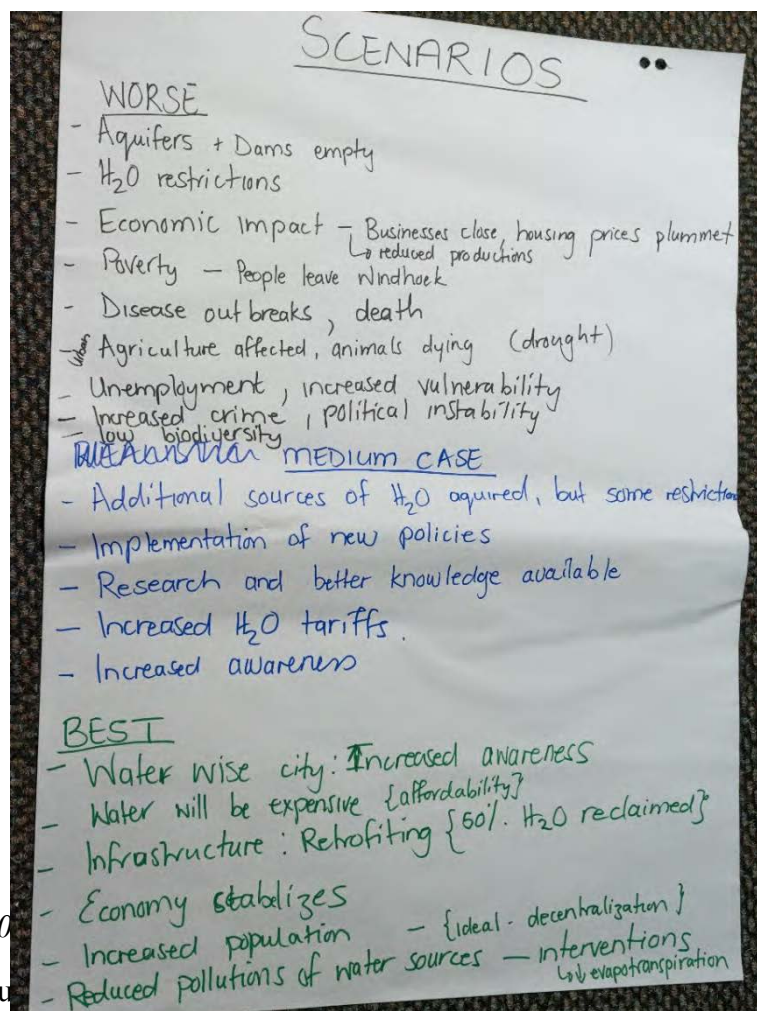 SCENARIOS
WORSE
- Aquifers + Dams empty
- H₂O restrictions
- Economic Impact - Businesses close, housing prices plummet
↳ reduced productions
- Poverty - People leave Windhoek
- Disease outbreaks, death
- Urban Agriculture affected, animals dying (drought)
- Unemployment, increased vulnerability
- Increased crime, political instability
- low biodiversity
MEDIUM CASE
- Additional sources of H₂O aquired, but some restriction
- Implementation of new policies
- Research and better knowledge available
- Increased H₂O tariffs.
- Increased awareness
BEST
- Water wise city: Increased awareness
- Water will be expensive {affordability}
- Infrastructure: Retrofiting {50%. H₂O reclaimed}
- Economy stabelizes
- Increased population - {ideal - decentralization}
- Reduced pollutions of water sources - interventions
↳↓ evapotranspiration